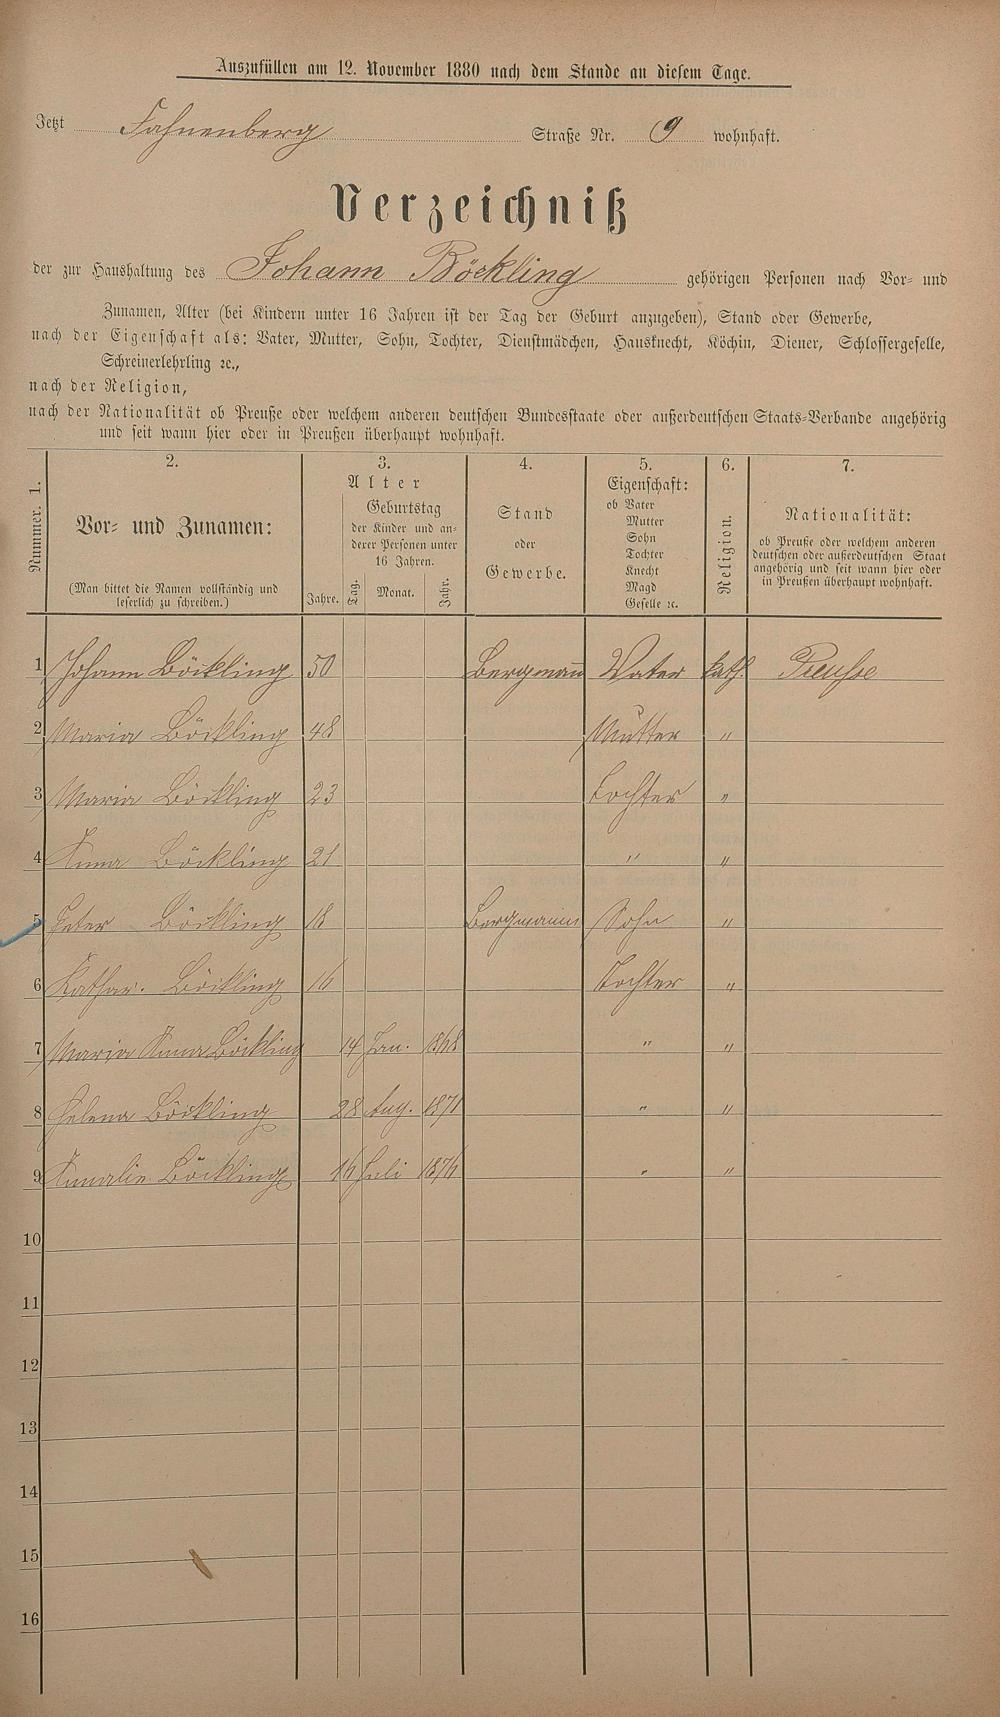 Auszufüllen am 12. November 1880 nach dem Stande an diesem Tage.
Jetzt Fahnenberg Straße Nr. 9 wohnhaft.
Verzeichniß
der zur Haushaltung des Johann Böckling gehörigen Personen nach Vor- und
Zunamen, Alter (bei Kindern unter 16 Jahren ist der Tag der Geburt anzugeben), Stand oder Gewerbe,
nach der Eigenschaft als: Vater, Mutter, Sohn, Tochter, Dienstmädchen, Hausknecht, Köchin, Diener, Schlossergeselle,
Schreinerlehrling ꝛc.,
nach der Religion,
nach der Nationalität ob Preuße oder welchem anderen deutschen Bundesstaate oder außerdeutschen Staats-Verbande angehörig
und seit wann hier oder in Preußen überhaupt wohnhaft.
Nummer. 1.
2.
Vor- und Zunamen:
(Man bittet die Namen vollständig und
leserlich zu schreiben.)
3.
Alter
Geburtstag
der Kinder und an-
derer Personen unter
16 Jahren.
Jahre. Tag. Monat. Jahr.
4.
Stand
oder
Gewerbe.
5.
Eigenschaft:
ob Vater
Mutter
Sohn
Tochter
Knecht
Magd
Geselle ꝛc.
6.
Religion.
7.
Nationalität:
ob Preuße oder welchem anderen
deutschen oder außerdeutschen Staat
angehörig und seit wann hier oder
in Preußen überhaupt wohnhaft.
1 Johann Böckling 50 Bergmann Vater kath. Preusse
2 Maria Böckling 48 Mutter "
3 Maria Böckling 23 Tochter "
4 Anna Böckling 21 " "
5 Peter Böckling 18 Bergmann Sohn "
6 Kathar. Böckling 16 Tochter "
7 Maria Anna Böckling 14 Jan. 1868 " "
8 Helena Böckling 28 Aug. 1871 " "
9 Amalie Böckling 16 Juli 1876 " "
10
11
12
13
14
15
16